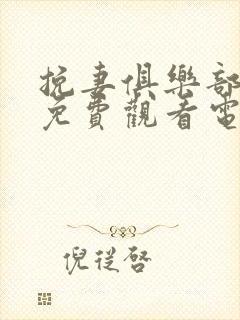 挽妻俱樂部
免費觀看電
倪從啓